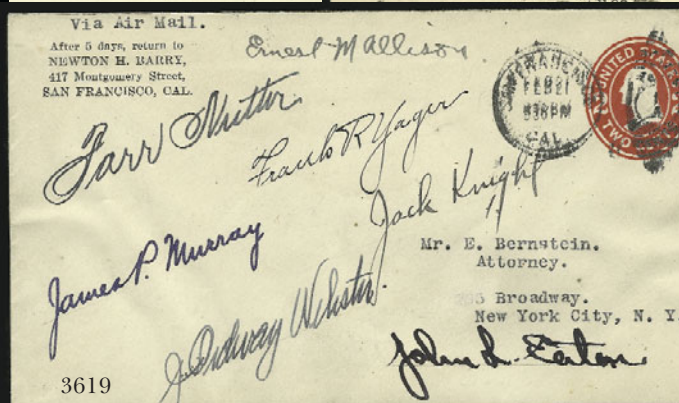 Via Air Mail.
After 5 days, return to
NEWTON H. BARRY,
417 Montgomery Street,
SAN FRANCISCO, CAL.
Ernest M Allison
UNITED
TWO
FEB 21
PM
CAL.
Farr Nutter
Frank R Yager
Jack Knight
James P. Murray
J. Ordway Webster.
Mr. E. Bernstein.
Attorney.
Broadway.
New York City, N. Y.
John L. Eaton
3619